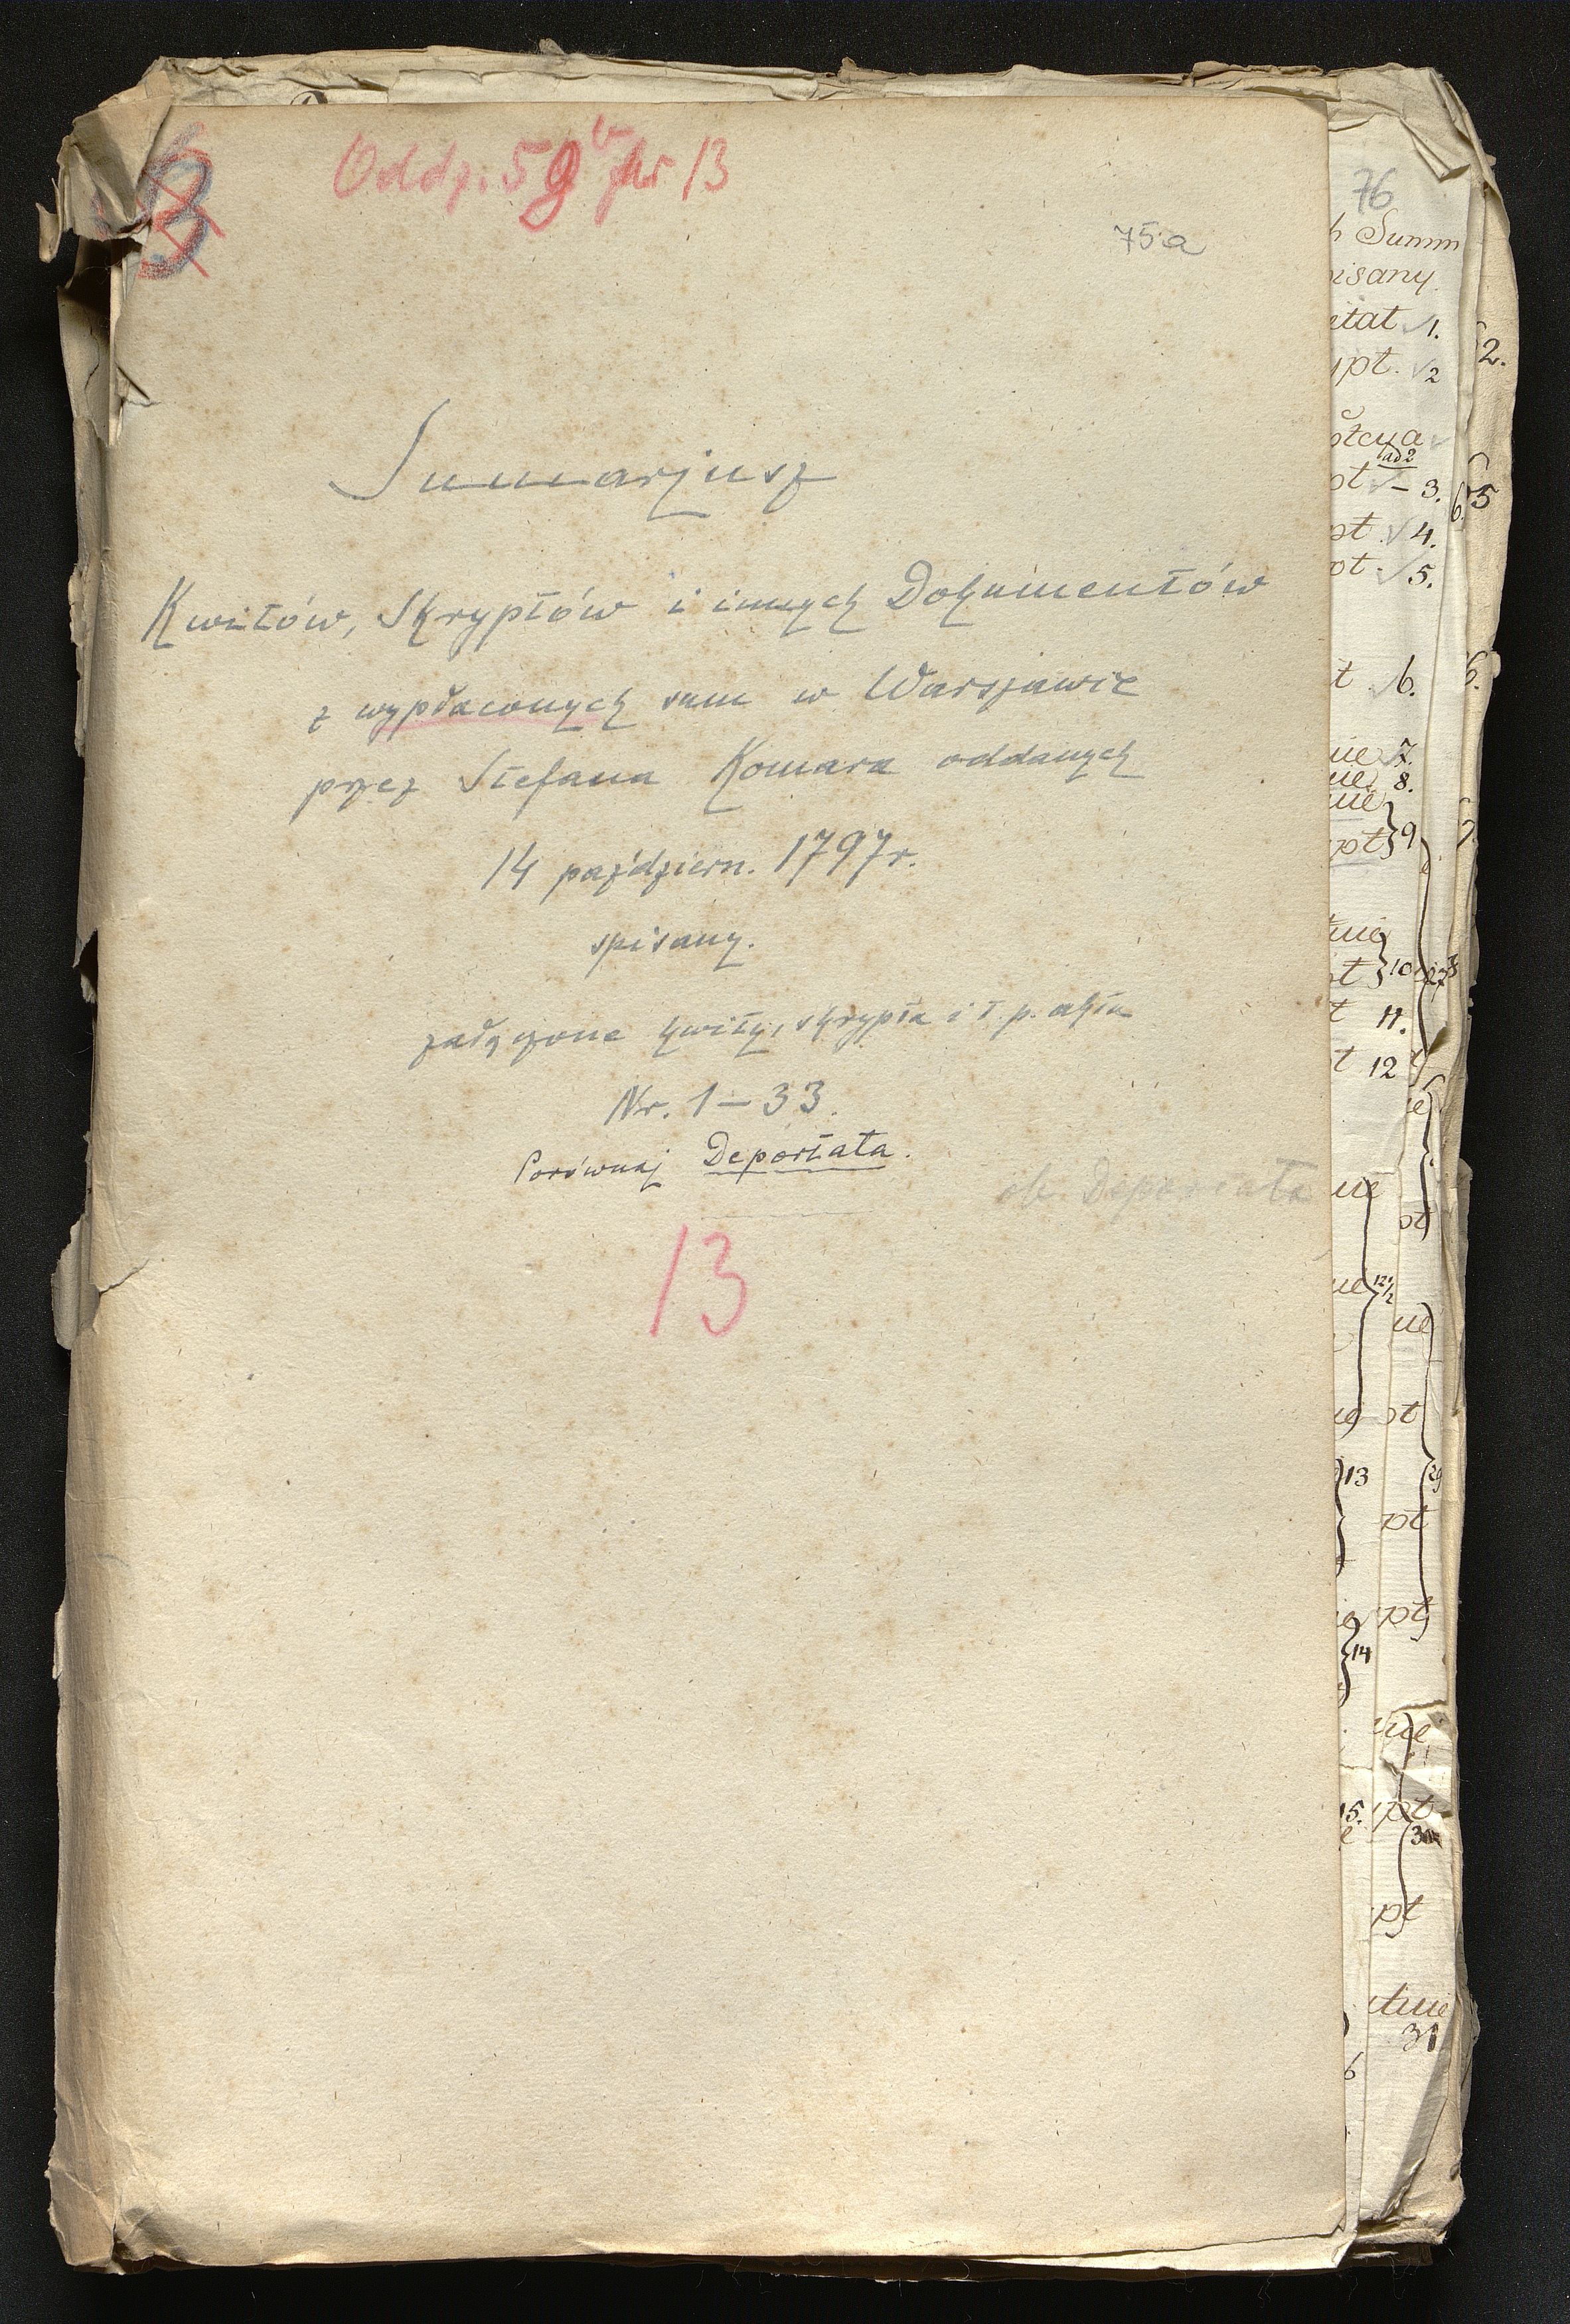 Oddz. 59 b Nr 13
75a
Sumarjusz
Kwitów, Skryptów i innych Dokumentów
z wypłaconych sum w Warszawie
przez Stefana Komara oddanych
14 październ. 1797 r.
spisany.
załączone kwity, skrypta i t. p. akta
Nr. 1–33.
Porównaj Deportata.
ob. Deportata
13
76
Summ
isany
1.
pt. 2
ad 2
3.
pt. 4.
pt. 5.
6.
7.
8.
9
10
11.
12
12 1/2
13
14
15.
2.
5
6.
29
30
31